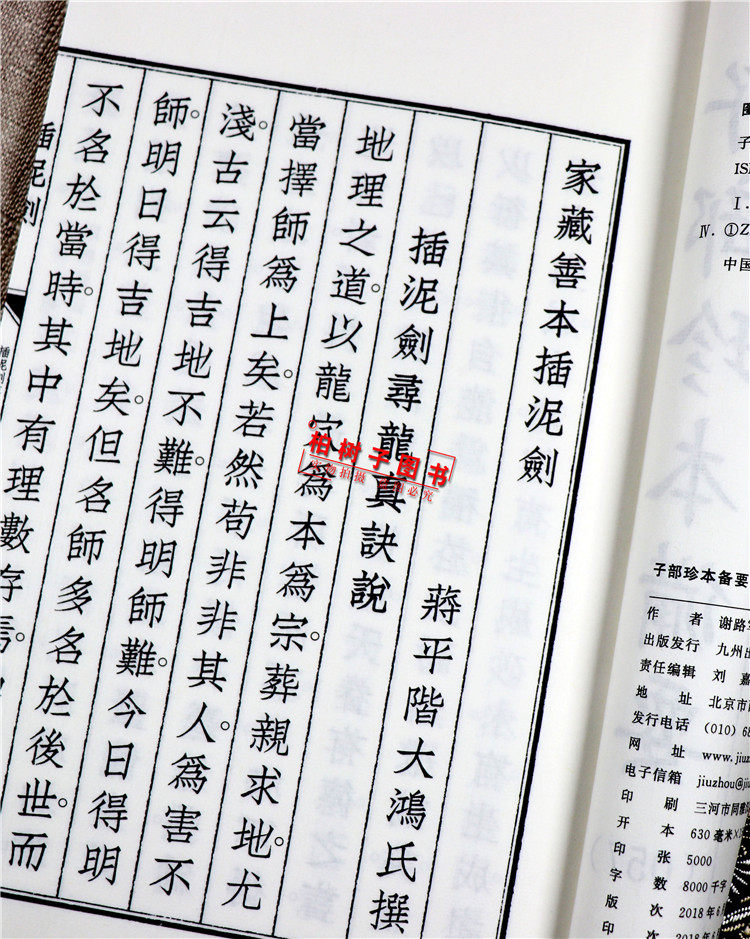 家藏善本插泥劍
蔣平階大鴻氏撰
插泥劍尋龍真訣說
地理之道。以龍穴為本為宗。葬親求地。尤
當擇師為上矣。若然苟非非其人。為害不
淺。古云得吉地不難。得明師難。今日得明
師。明日得吉地矣。但名師多名於後世。而
不名於當時。其中有理數存焉。
插泥劍
插泥劍
柏树子图书
实物拍摄 盗图必究
子
IS
Ⅰ.
Ⅳ. ①Z
中国
子部珍本备要
作 者 谢路
出版发行 九州出
责任编辑 刘 嘉
地 址 北京市
发行电话 (010)68
网 址 www.jiuz
电子信箱 jiuzhou@jiu
印 刷 三河市同
开 本 630毫米×
印 张 5000
字 数 8000千字
版 次 2018年6
印 次 2018年6